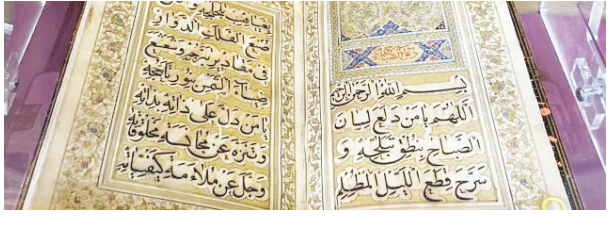 بسم الله الرحمن الرحيم
اللهم يا من دلع لسان
الصباح بنطق تبلجه و
سرح قطع الليل المظلم
بغياهب تلجلجه
صنع الفلك الدوار
في مقادير تبرجه وشعشع
ضياء الشمس بنور تاججه
يا من دل على ذاته بذاته
وتنزه عن مجانسة مخلوقاته
وجل عن ملائمة كيفياته